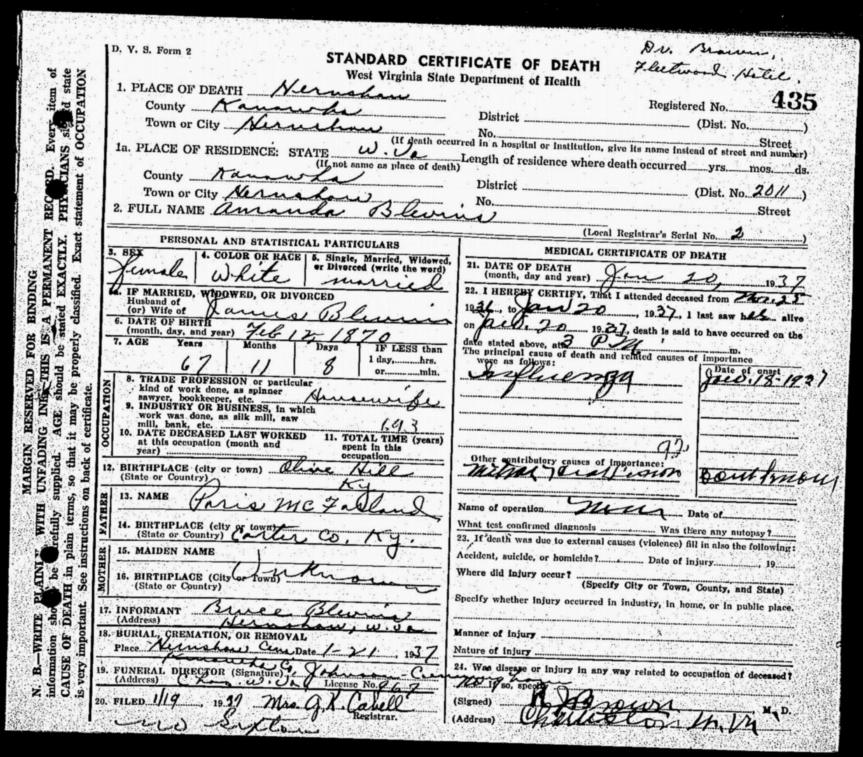 D. V. S. Form 2
Dr. Brown,
Fleetwood Hotel.
STANDARD CERTIFICATE OF DEATH
West Virginia State Department of Health
1. PLACE OF DEATH Hernshaw
Registered No. 435
County Kanawha District (Dist. No. )
Town or City Hernshaw No. Street
(If death occurred in a hospital or institution, give its name instead of street and number)
1a. PLACE OF RESIDENCE: STATE W. Va Length of residence where death occurred yrs. mos. ds.
(If not same as place of death)
County Kanawha District (Dist. No. 2011 )
Town or City Hernshaw No. Street
2. FULL NAME Amanda Blevins
(Local Registrar's Serial No. 2 )
PERSONAL AND STATISTICAL PARTICULARS
3. SEX female
4. COLOR OR RACE White
5. Single, Married, Widowed, or Divorced (write the word) married
IF MARRIED, WIDOWED, OR DIVORCED
Husband of
(or) Wife of James Blevins
6. DATE OF BIRTH
(month, day, and year) Feb 12, 1870
7. AGE Years Months Days IF LESS than
67 11 8 1 day, hrs.
or min.
OCCUPATION
8. TRADE PROFESSION or particular
kind of work done, as spinner
sawyer, bookkeeper, etc. Housewife
9. INDUSTRY OR BUSINESS, in which
work was done, as silk mill, saw
mill, bank, etc. 193
10. DATE DECEASED LAST WORKED
at this occupation (month and
year)
11. TOTAL TIME (years)
spent in this
occupation
12. BIRTHPLACE (city or town) Olive Hill
(State or Country) Ky
FATHER
13. NAME Paris McFarland
14. BIRTHPLACE (city or town)
(State or Country) Carter Co, Ky.
MOTHER
15. MAIDEN NAME
16. BIRTHPLACE (City or Town) Unknown
(State or Country)
17. INFORMANT Bruce Blevins
(Address) Hernshaw, W. Va
18. BURIAL, CREMATION, OR REMOVAL
Place Hernshaw Cem Date 1-21 1937
Kanawha Co,
19. FUNERAL DIRECTOR (Signature) Johnson
(Address) Chas, W. Va License No. 967
20. FILED 1/19 1937 Mrs. G. K. Cavell
Registrar.
no Sexton
MEDICAL CERTIFICATE OF DEATH
21. DATE OF DEATH
(month, day and year) Jan 20, 1937
22. I HEREBY CERTIFY, That I attended deceased from
1936, to Jan 20 1937, I last saw her alive
on Jan. 20 1937, death is said to have occurred on the
date stated above, at 3 P M m.
The principal cause of death and related causes of importance
were as follows:
Date of onset
Influenza Jan. 18-1937
92
Other contributory causes of importance:
Dont know
Name of operation None Date of
What test confirmed diagnosis Was there any autopsy?
23. If death was due to external causes (violence) fill in also the following:
Accident, suicide, or homicide? Date of injury 19
Where did injury occur?
(Specify City or Town, County, and State)
Specify whether injury occurred in industry, in home, or in public place.
Manner of injury
Nature of injury
24. Was disease or injury in any way related to occupation of deceased?
No If so, specify
(Signed) Brown M. D.
(Address) Charleston W. Va
MARGIN RESERVED FOR BINDING
N. B.—WRITE PLAINLY WITH UNFADING INK—THIS IS A PERMANENT RECORD. Every item of
information should be carefully supplied. AGE should be stated EXACTLY. PHYSICIANS should state
CAUSE OF DEATH in plain terms, so that it may be properly classified. Exact statement of OCCUPATION
is very important. See instructions on back of certificate.